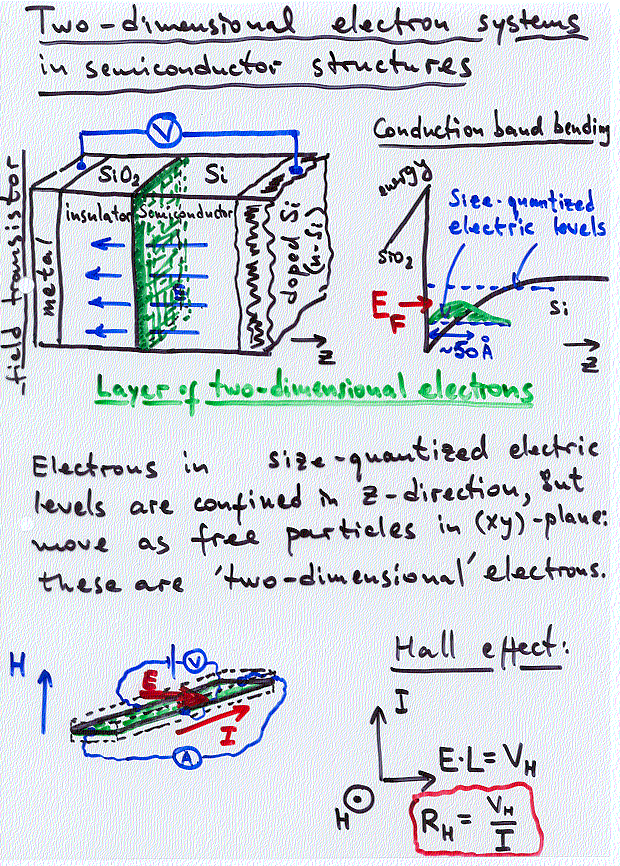 Two-dimensional electron systems
in semiconductor structures
V
Conduction band bending
field transistor
metal
SiO₂
insulator
Si
semiconductor
doped Si
(n-Si)
E
z
energy
SiO₂
Size-quantized
electric levels
E_F
Si
~50Å
z
Layer of two-dimensional electrons
Electrons in size-quantized electric
levels are confined in z-direction, but
move as free particles in (xy)-plane:
these are 'two-dimensional' electrons.
H
E
V
I
A
Hall effect:
I
E·L=V_H
H
R_H = V_H/I